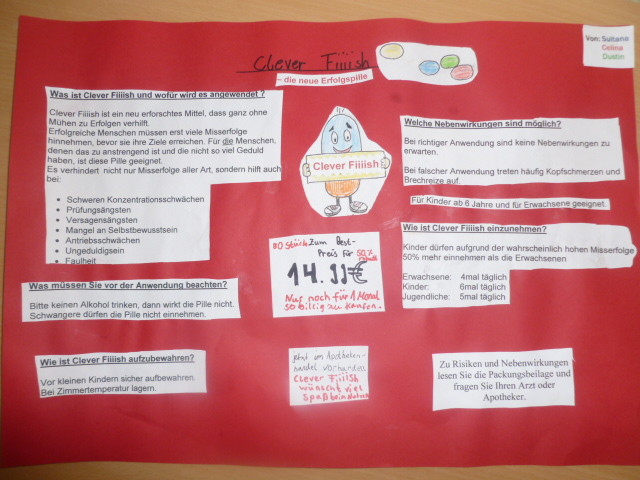 Clever Fiiiish
– die neue Erfolgspille
Von: Sultanie
Celina
Dustin
Was ist Clever Fiiiish und wofür wird es angewendet ?
Clever Fiiiish ist ein neu erforschtes Mittel, dass ganz ohne
Mühen zu Erfolgen verhilft.
Erfolgreiche Menschen müssen erst viele Misserfolge
hinnehmen, bevor sie ihre Ziele erreichen. Für die Menschen,
denen das zu anstrengend ist und die nicht so viel Geduld
haben, ist diese Pille geeignet.
Es verhindert nicht nur Misserfolge aller Art, sondern hilft auch
bei:
• Schweren Konzentrationsschwächen
• Prüfungsängsten
• Versagensängsten
• Mangel an Selbstbewusstsein
• Antriebsschwächen
• Ungeduldigsein
• Faulheit
Was müssen Sie vor der Anwendung beachten?
Bitte keinen Alkohol trinken, dann wirkt die Pille nicht.
Schwangere dürfen die Pille nicht einnehmen.
Wie ist Clever Fiiiish aufzubewahren?
Vor kleinen Kindern sicher aufbewahren.
Bei Zimmertemperatur lagern.
Clever Fiiiish
80 Stück zum Best-
Preis für 50%
rabatt
14.99€
Nur noch für 1 Monat
so billig zu kaufen.
jetzt im Apotheken-
handel vorhanden
Clever Fiiiish
wünscht viel
Spaß
Welche Nebenwirkungen sind möglich?
Bei richtiger Anwendung sind keine Nebenwirkungen zu
erwarten.
Bei falscher Anwendung treten häufig Kopfschmerzen und
Brechreize auf.
Für Kinder ab 6 Jahre und für Erwachsene geeignet.
Wie ist Clever Fiiiish einzunehmen?
Kinder dürfen aufgrund der wahrscheinlich hohen Misserfolge
50% mehr einnehmen als die Erwachsenen
Erwachsene: 4mal täglich
Kinder: 6mal täglich
Jugendliche: 5mal täglich
Zu Risiken und Nebenwirkungen
lesen Sie die Packungsbeilage und
fragen Sie Ihren Arzt oder
Apotheker.